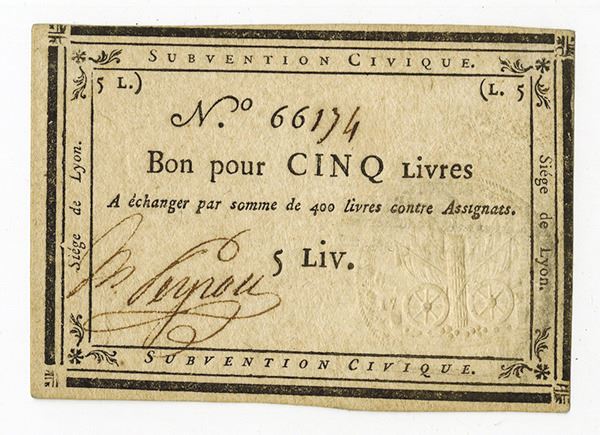 SUBVENTION CIVIQUE.
5 L.)
(L. 5
N.o 66174
Bon pour CINQ LIVRES
A échanger par somme de 400 livres contre Assignats.
5 LIV.
Siége de Lyon.
Siége de Lyon.
SUBVENTION CIVIQUE.